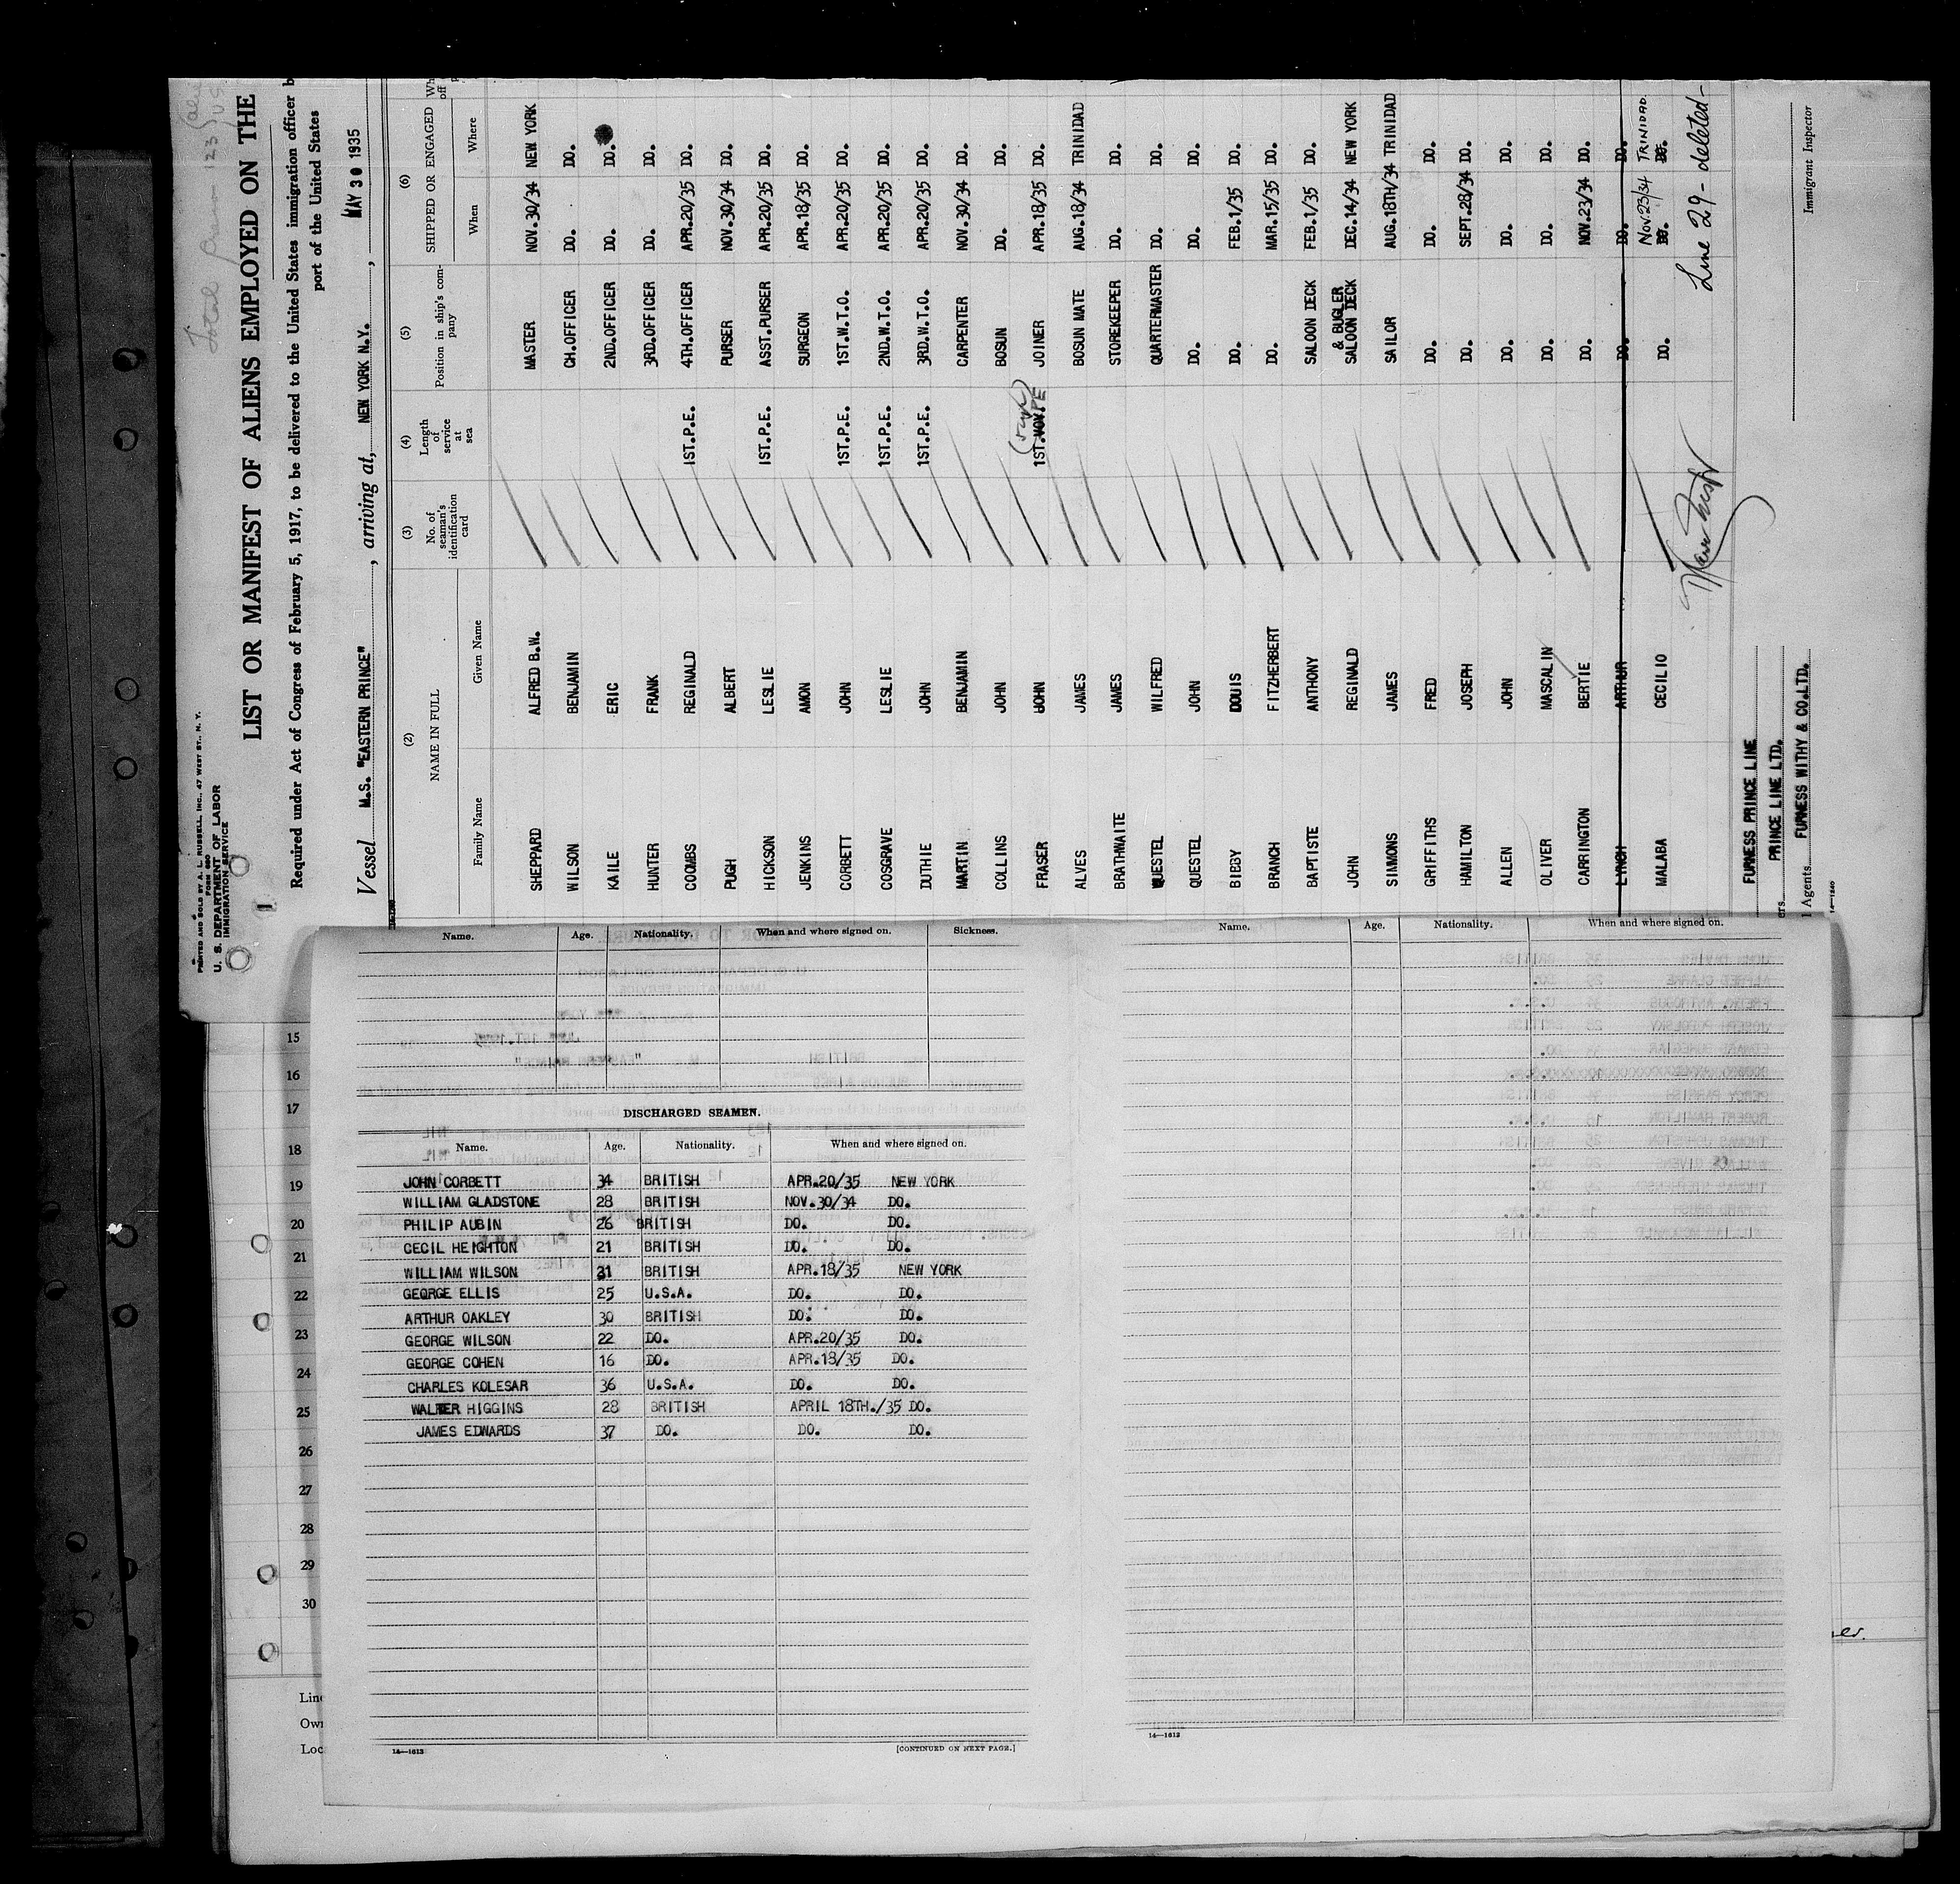 Total
123
U S
LIST OR MANIFEST OF ALIENS EMPLOYED ON THE
PRINTED AND SOLD BY A. L. RUSSELL, INC., 47 WEST ST., N. Y.
FORM 680
U. S. DEPARTMENT OF LABOR
IMMIGRATION SERVICE
1
Required under Act of Congress of February 5, 1917, to be delivered to the United States immigration officer b
port of the United States
Vessel M.S. "EASTERN PRINCE", arriving at, NEW YORK N.Y., MAY 30 1935
(2) (3) (4) (5) (6)
NAME IN FULL No. of seaman's identification card Length of service at sea Position in ship's company SHIPPED OR ENGAGED
Family Name Given Name When Where
SHEPPARD ALFRED B.W. MASTER NOV.30/34 NEW YORK
WILSON BENJAMIN CH.OFFICER DO. DO.
KAILE ERIC 2ND.OFFICER DO. DO.
HUNTER FRANK 3RD.OFFICER DO. DO.
COOMBS REGINALD 1ST.P.E. 4TH.OFFICER APR.20/35 DO.
PUGH ALBERT PURSER NOV.30/34 DO.
HICKSON LESLIE 1ST.P.E. ASST.PURSER APR.20/35 DO.
JENKINS AMON SURGEON APR.18/35 DO.
CORBETT JOHN 1ST.P.E. 1ST.W.T.O. APR.20/35 DO.
COSGRAVE LESLIE 1ST.P.E. 2ND.W.T.O. APR.20/35 DO.
DUTHIE JOHN 1ST.P.E. 3RD.W.T.O. APR.20/35 DO.
MARTIN BENJAMIN CARPENTER NOV.30/34 DO.
COLLINS JOHN BOSUN DO. DO.
FRASER JOHN 1ST. JOINER APR.18/35 DO.
ALVES JAMES BOSUN MATE AUG.18/34 TRINIDAD
BRATHWAITE JAMES STOREKEEPER DO. DO.
QUESTEL WILFRED QUARTERMASTER DO. DO.
QUESTEL JOHN DO. DO. DO.
BIBBY LOUIS DO. FEB.1/35 DO.
BRANCH FITZHERBERT DO. MAR.15/35 DO.
BAPTISTE ANTHONY SALOON DECK FEB.1/35 DO.
& BUGLER
JOHN REGINALD SALOON DECK DEC.14/34 NEW YORK
SIMMONS JAMES SAILOR AUG.18TH/34 TRINIDAD
GRIFFITHS FRED DO. DO. DO.
HAMILTON JOSEPH DO. SEPT.28/34 DO.
ALLEN JOHN DO. DO. DO.
OLIVER MASCALIN DO. DO. DO.
CARRINGTON BERTIE DO. NOV.23/34 DO.
LYNCH ARTHUR DO. DO. DO.
Nov.23/34 TRINIDAD.
MALABA CECILIO DO. DO. DO.
Line 29 - deleted -
FURNESS PRINCE LINE
ers PRINCE LINE LTD.
l Agents FURNESS WITHY & CO.LTD.
Immigrant Inspector
14—1240
Name. Age. Nationality. When and where signed on. Sickness.
DISCHARGED SEAMEN.
Name. Age. Nationality. When and where signed on.
JOHN CORBETT 34 BRITISH APR.20/35 NEW YORK
WILLIAM GLADSTONE 28 BRITISH NOV.30/34 DO.
PHILIP AUBIN 26 BRITISH DO. DO.
CECIL HEIGHTON 21 BRITISH DO. DO.
WILLIAM WILSON 31 BRITISH APR.18/35 NEW YORK
GEORGE ELLIS 25 U.S.A. DO. DO.
ARTHUR OAKLEY 30 BRITISH DO. DO.
GEORGE WILSON 22 DO. APR.20/35 DO.
GEORGE COHEN 16 DO. APR.18/35 DO.
CHARLES KOLESAR 36 U.S.A. DO. DO.
WALTER HIGGINS 28 BRITISH APRIL 18TH./35 DO.
JAMES EDWARDS 37 DO. DO. DO.
14—1613
[CONTINUED ON NEXT PAGE.]
Name. Age. Nationality. When and where signed on.
14—1613
15
16
17
18
19
20
21
22
23
24
25
26
27
28
29
30
Line
Own
Loc